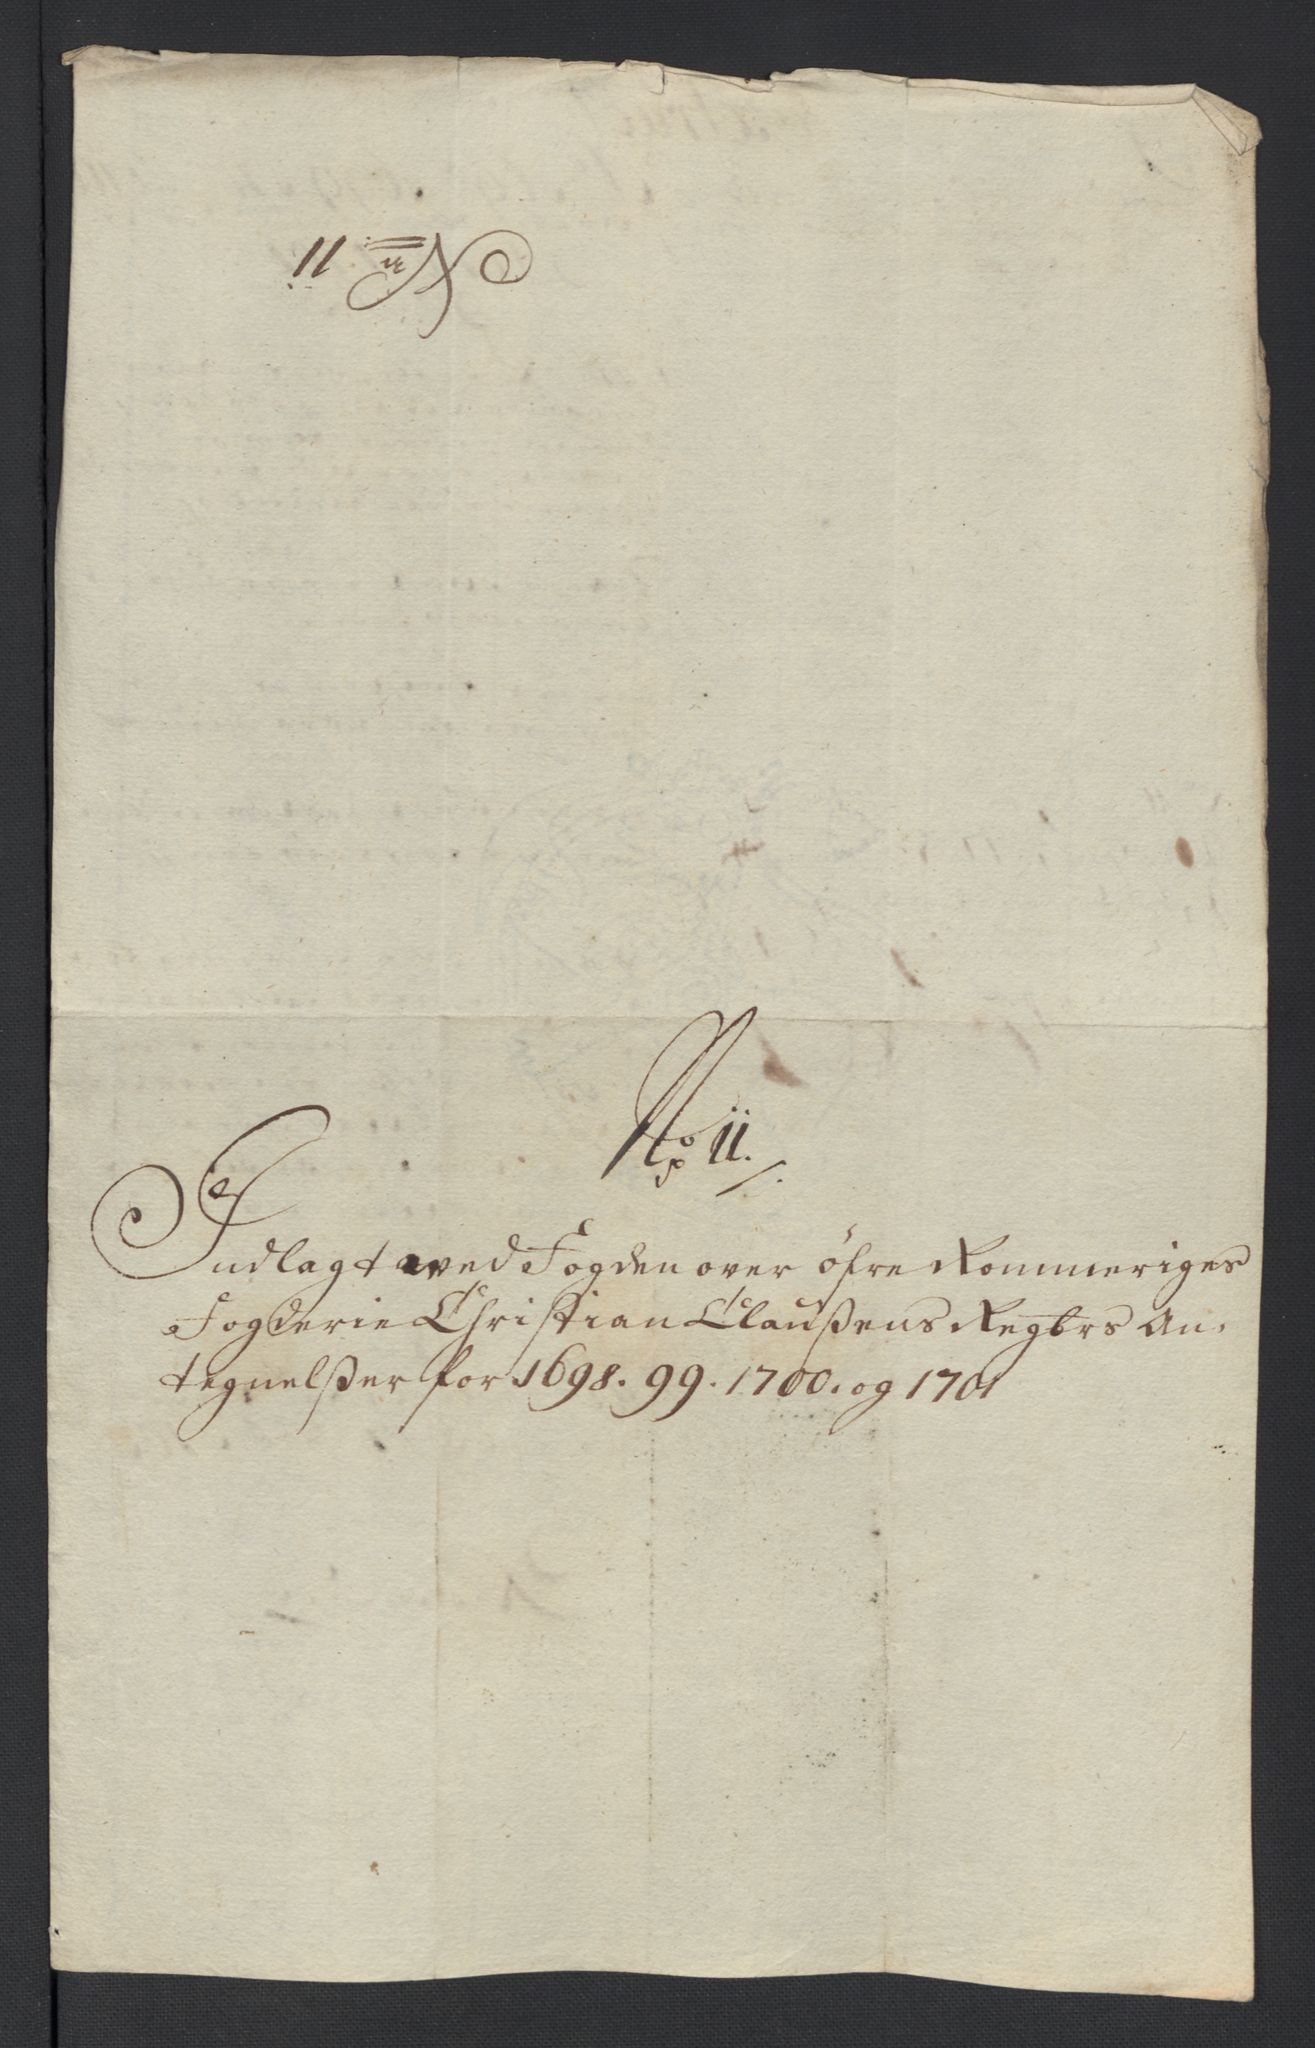 No 11
No 11.
Indlagt wed Fogden over Öfre Rommeriges
Fogderie Christian Claußens Regbrs An¬
tegnelßer for 1698. 99. 1700. og 1701